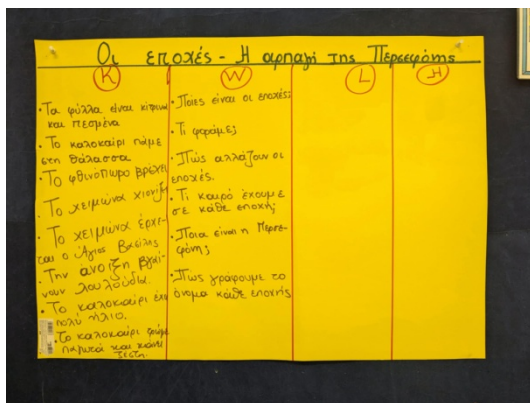 Οι εποχές - Η αρπαγή της Περσεφόνης
K
W
L
H
• Τα φύλλα είναι κίτρινα
και πεσμένα
• Το καλοκαίρι πάμε
στη θάλασσα
• Το φθινόπωρο βρέχει
• Το χειμώνα χιονίζει
• Το χειμώνα έρχε-
ται ο Άγιος Βασίλης
• Την άνοιξη βγαί-
νουν λουλούδια.
• Το καλοκαίρι έχει
πολύ ήλιο.
• Το καλοκαίρι τρώμε
παγωτά και κάνει
ζέστη.
• Ποιες είναι οι εποχές;
• Τι φοράμε;
• Πώς αλλάζουν οι
εποχές.
• Τι καιρό έχουμε
σε κάθε εποχή;
• Ποια είναι η Περσε-
φόνη;
• Πως γράφουμε το
όνομα κάθε εποχής